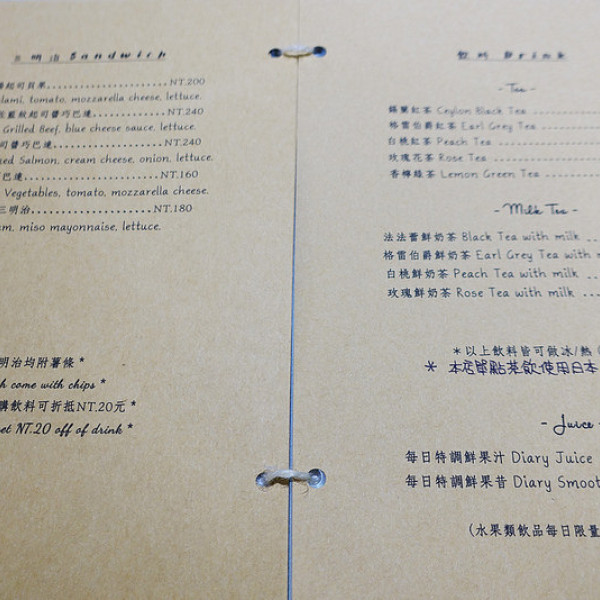 三明治 Sandwich
起司貝果......................NT.200
lami, tomato, mozzarella cheese, lettuce.
藍紋起司醬巧巴達..............NT.240
Grilled Beef, blue cheese sauce, lettuce.
司醬巧巴達....................NT.240
ed Salmon, cream cheese, onion, lettuce.
巴達..........................NT.160
Vegetables, tomato, mozzarella cheese.
三明治......................NT.180
m, miso mayonnaise, lettuce.
明治均附薯條 *
h come with chips *
購飲料可折抵NT.20元 *
et NT.20 off of drink *
飲料 Drink
- Tea -
錫蘭紅茶 Ceylon Black Tea
格雷伯爵紅茶 Earl Grey Tea
白桃紅茶 Peach Tea
玫瑰花茶 Rose Tea
香檸綠茶 Lemon Green Tea
- Milk Tea -
法法蕾鮮奶茶 Black Tea with milk
格雷伯爵鮮奶茶 Earl Grey Tea with m
白桃鮮奶茶 Peach Tea with milk
玫瑰鮮奶茶 Rose Tea with milk
*以上飲料皆可做冰/熱
* 本店單點茶飲使用日本
- Juice -
每日特調鮮果汁 Diary Juice
每日特調鮮果昔 Diary Smoot
(水果類飲品每日限量